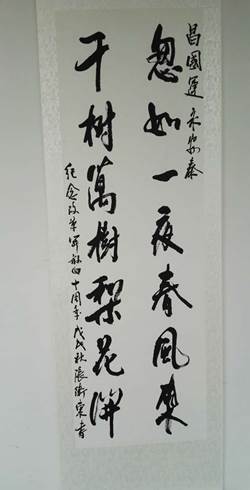 昌國運永安泰
忽如一夜春風來
千树萬樹梨花開
纪念改革開放四十周年戊戌秋張衛東書